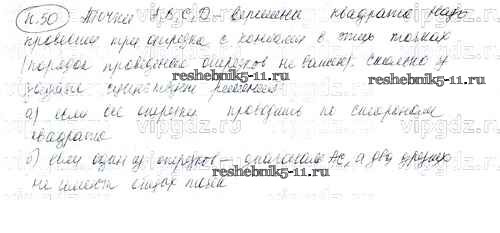 №50 Точки А, В, С, D – вершины квадрата. Надо
провести три отрезка с концами в этих точках
(порядок проведения отрезков не важен). Сколько у
задачи существует решений
reshebnik5-11.ru
а) если все отрезки проводить по сторонам
квадрата
б) если один из отрезков – диагональ АС, а два других
не имеют общих точек
reshebnik5-11.ru
vipgdz.ru